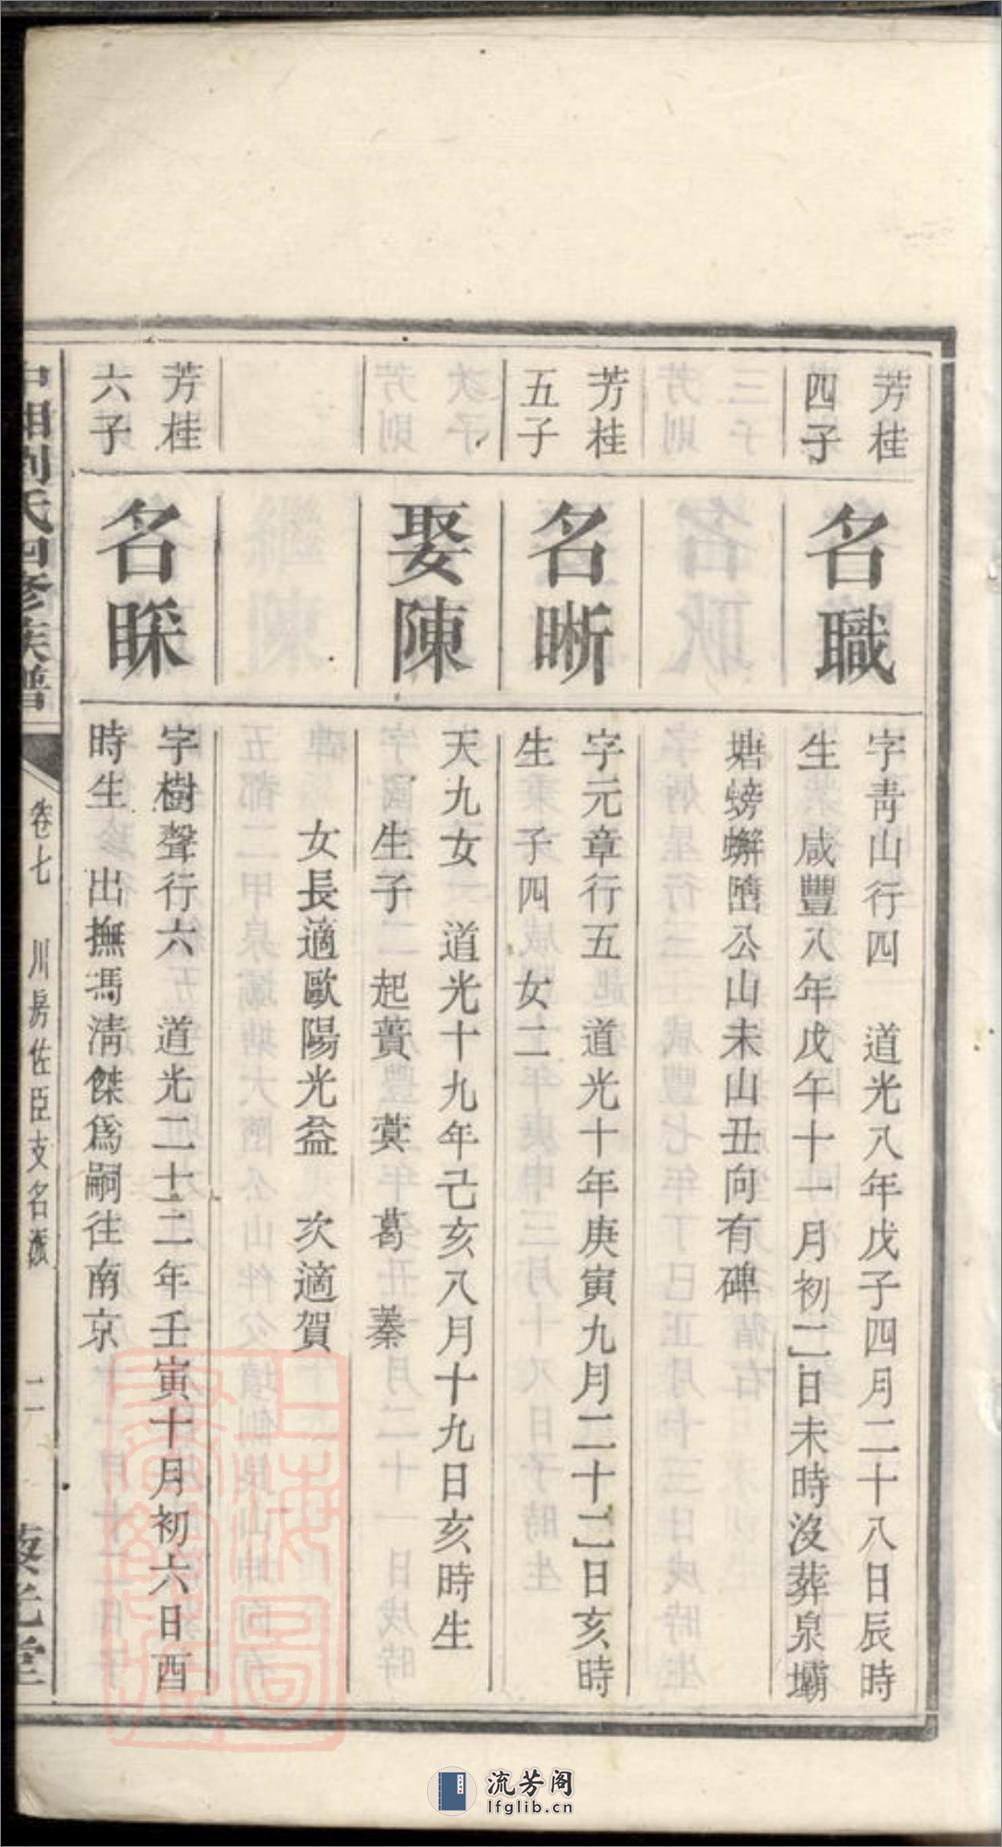 芳桂
四子
名職
字靑山行四　道光八年戊子四月二十八日辰時
生　咸豐八年戊午十一月初二日未時沒葬泉壩
塘螃蠏墮公山未山丑向有碑
芳桂
五子
名晣
字元章行五　道光十年庚寅九月二十二日亥時
生　子四　女二
娶陳
天九女　道光十九年己亥八月十九日亥時生
生子　起蕢　蓂　葛　蓁
女長適歐陽光益　次適賀
芳桂
六子
名睬
字樹聲行六　道光二十二年壬寅十月初六日酉
時生　出撫馮淸傑爲嗣往南京
中湘劉氏四修族譜
卷七　川房佐臣支名派　二
堂
流芳阁
lfglib.cn